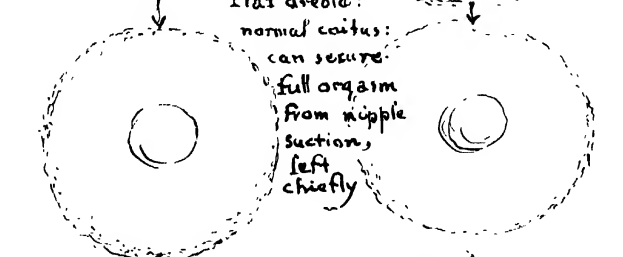 flat areola:
normal coitus:
can secure
full orgasm
from nipple
suction,
left
chiefly